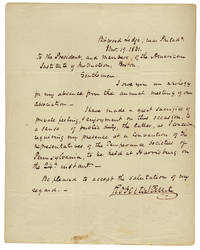 Boxwood Lodge, near Philada.
Nov. 19. 1831.
To the President, and members, of the American
Institute of Instruction, Boston
Gentlemen
I owe you an apology
for my absence from the annual meeting of our
association.
I have made a great sacrifice of
private feeling & enjoyment on this occasion, to
a sense of public duty, the latter, as I conceive
requiring my presence at a Convention of the
representatives of the Temperance Societies of
Pennsylvania, to be held at Harrisburg on
the 24th instant.
Be pleased to accept the salutation of my
regard.